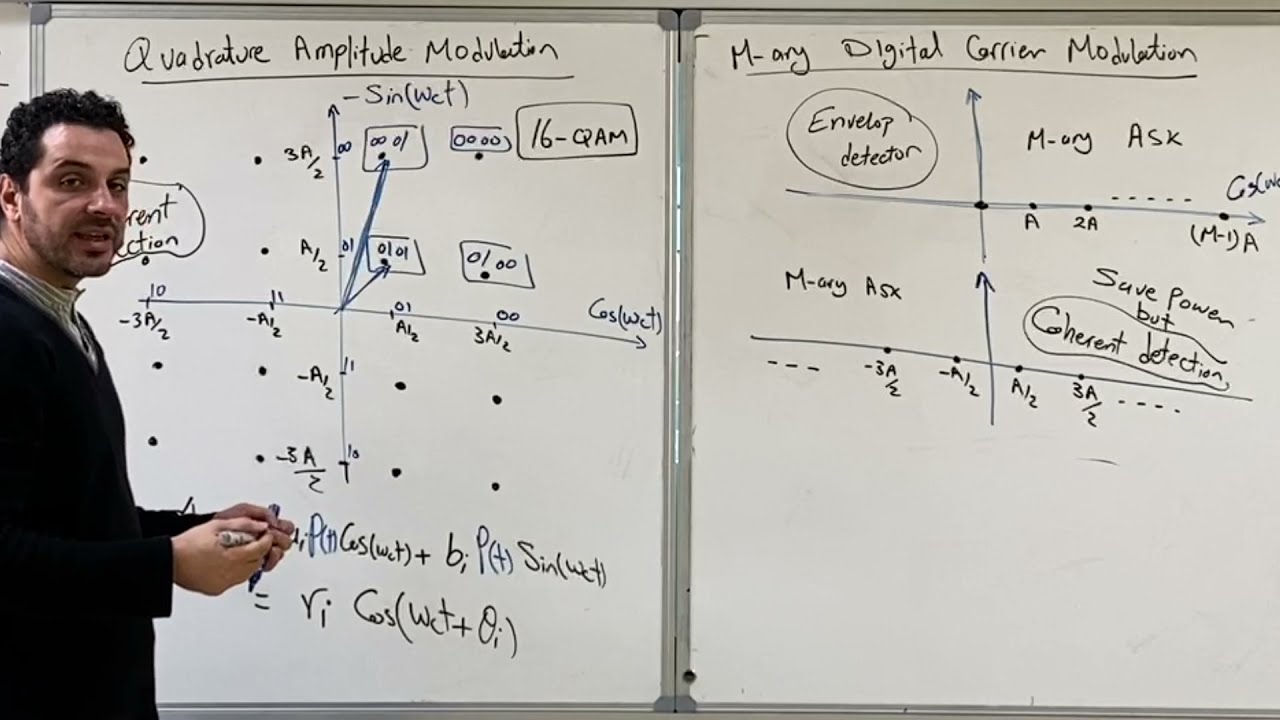 Quadrature Amplitude Modulation
-Sin(Wct)
16-QAM
3A/2
00
00 01
00 00
A/2
01
01 01
01 00
rent
ction
10
11
01
00
-3A/2
-A/2
A/2
3A/2
Cos(Wct)
-A/2
11
-3A/2
10
P(t) Cos(Wct) + bi P(t) Sin(Wct)
= ri Cos(Wct + θi)
M-ary DIgital Carrier Modulation
Envelop
detector
M-ary ASK
A
2A
-----
(M-1)A
M-ary ASK
Save Power
but
Coherent detection,
---
-3A/2
-A/2
A/2
3A/2
----